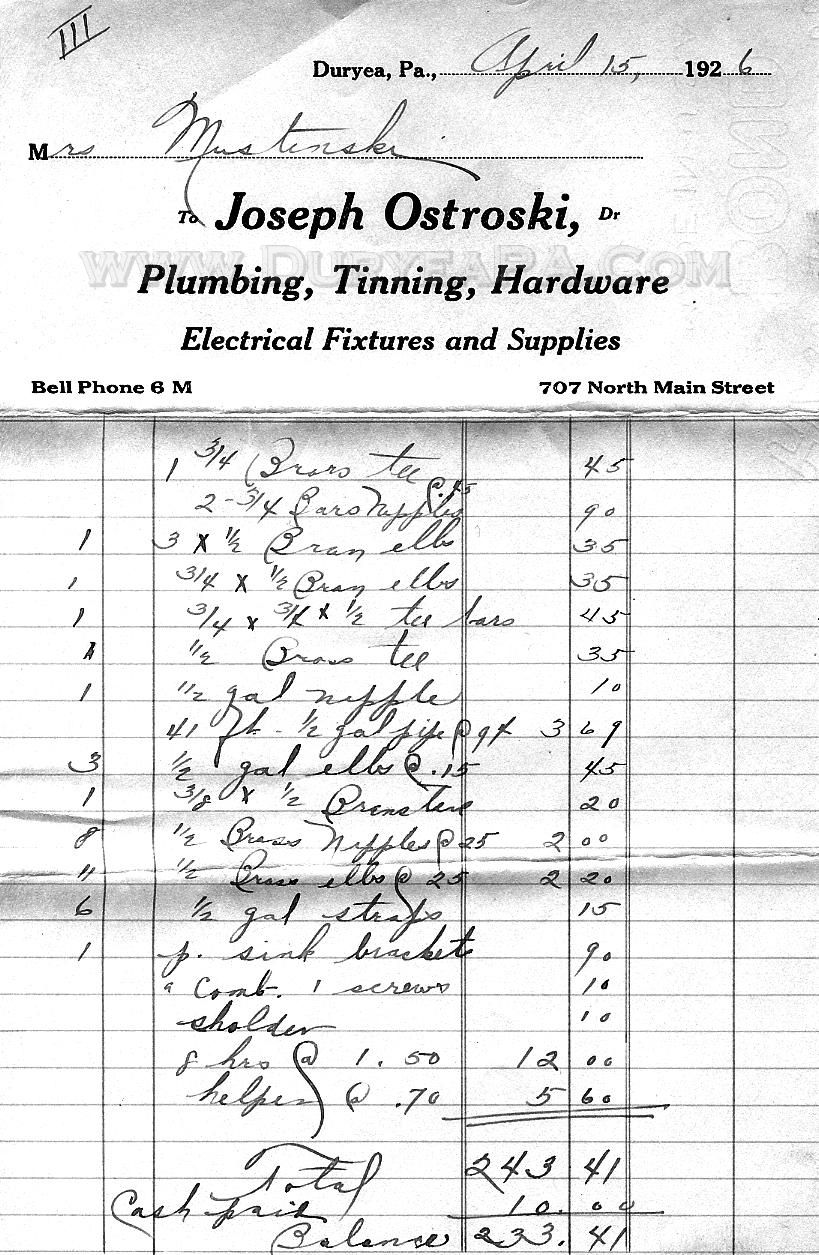 III
Duryea, Pa., April 15, 1926
Mrs Mustinski
To Joseph Ostroski, Dr
www.DuryeaPA.com
Plumbing, Tinning, Hardware
Electrical Fixtures and Supplies
Bell Phone 6 M 707 North Main Street
1 3/4 Brass tee 45
2 - 3/4 Bars Nipples @ .45 90
1 3 x 1/2 Bran elbs 35
1 3/4 x 1/2 Bran elbs 35
1 3/4 x 3/4 x 1/2 tee bars 45
1 1/2 Brass tee 35
1 1/2 gal nipple 10
41 ft - 1/2 gal pipe @ 9¢ 3 69
3 1/2 gal elbs @ .15 45
1 3/8 x 1/2 20
8 1/2 Brass Nipples @ 25 2 00
" 1/2 Brass elbs @ 25 2 20
6 1/2 gal straps 15
1 p. sink brackets 90
a comb. 1 screws 10
sholder 10
8 hrs @ 1.50 12 00
helper @ .70 5 60
Total 243 41
Cash paid 10.00
Balance 233.41